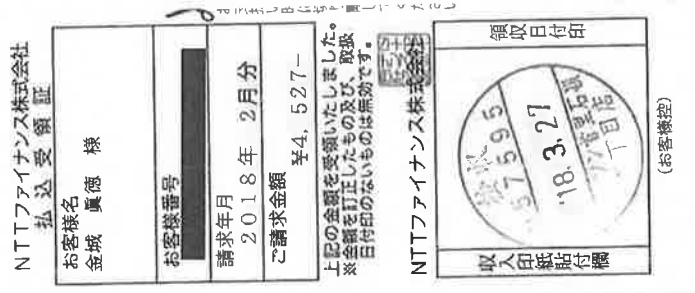 NTTファイナンス株式会社
払込受領証
お客様名
金城 眞徳 様
お客様番号
請求年月
2018年 2月分
ご請求金額
¥4,527-
上記の金額を受領いたしました。
※金額を訂正したもの及び、取扱
日付印のないものは無効です。
NTTファイナンス株式会社
領収日付印
67595
'18.3.27
丁目店
収入印紙貼付欄
(お客様控)